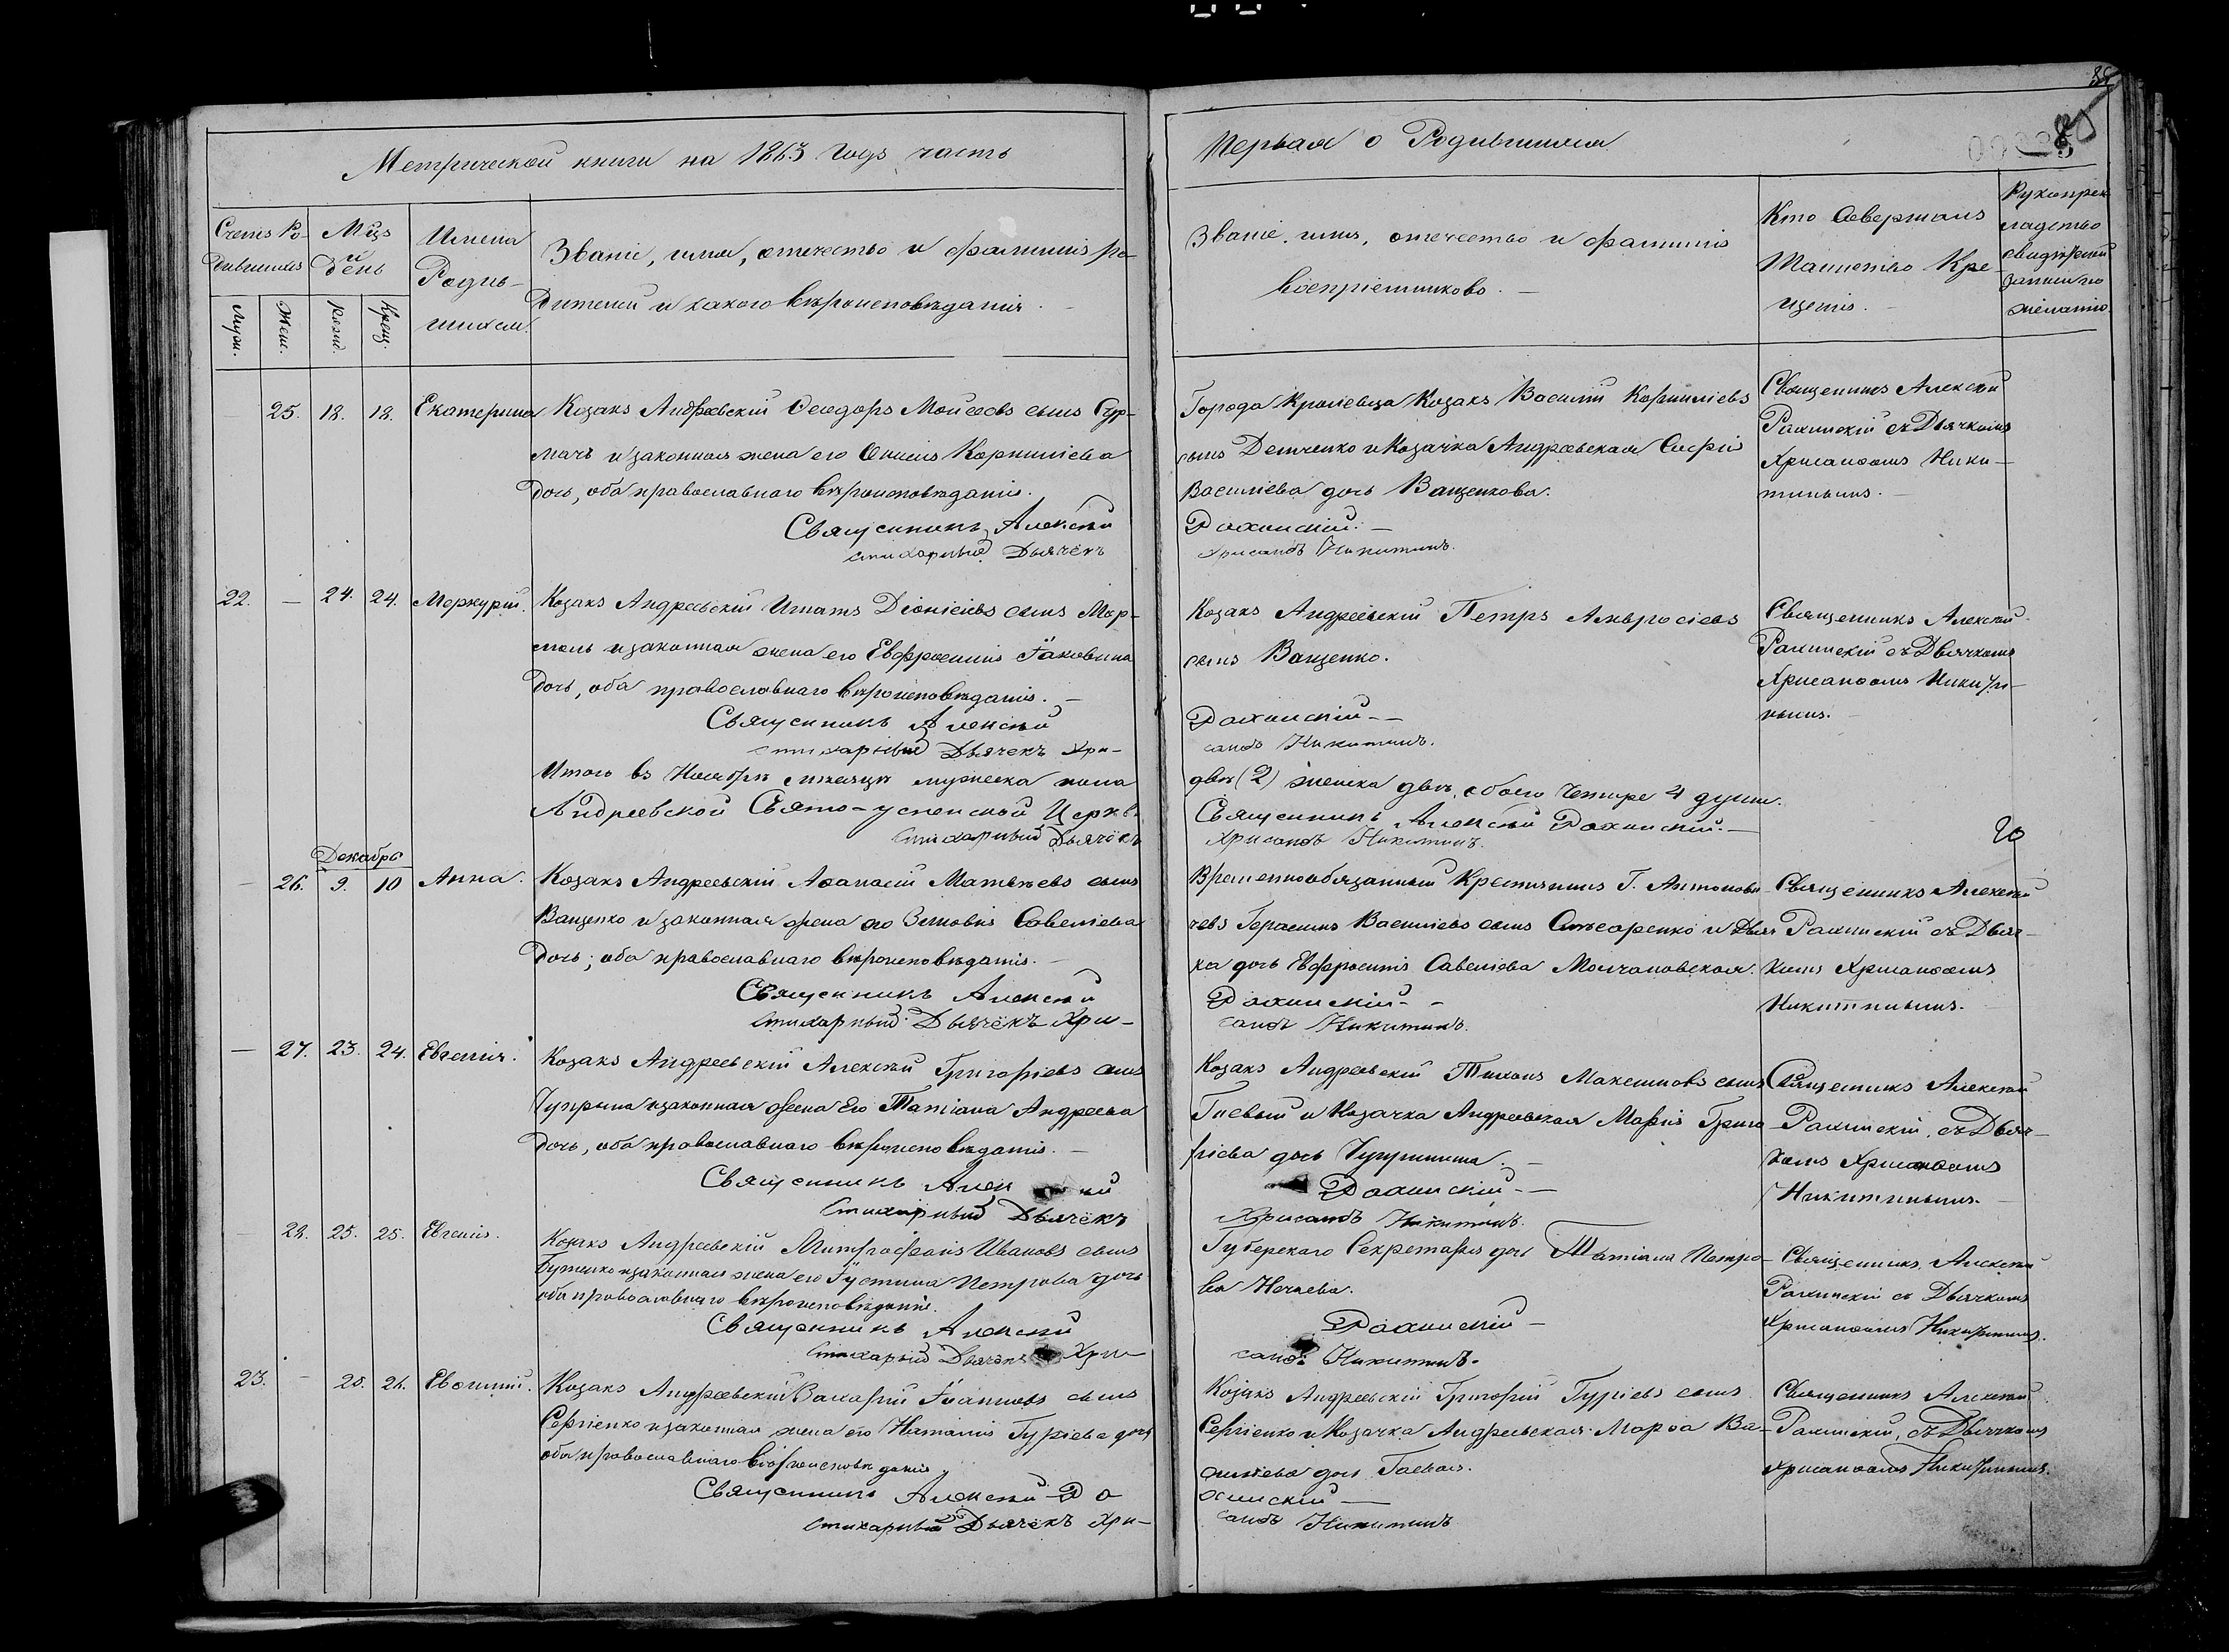 Метрической книги на 1863 годъ часть
Первая о Родившихся
85
Счетъ Ро-
дившихся
Муж.
Жен.
Мцъ
и
день
Рожд.
Крещ.
Имена
Родив-
шихся.
Званіе, имя, отечество и фамилія ро-
дителей и какого вѣроисповѣданія.
Званіе, имя, отечество и фамилія
воспріемниковъ.
Кто совершалъ
Таинство Кре-
щенія.
Рукоприк
ладство
свидѣтелей
записи по
желанію.
25. 18. 18. Екатерина
Козакъ Андреевскій Ѳеодоръ Моисеовъ сынъ Сур-
мачъ и законная жена его Корниліева
дочь, оба православнаго вѣроисповѣданія.
Священникъ Алексѣй
стихарный Дьячёкъ
Города Кролевца Козакъ Василій Корниліевъ
сынъ Детченко и Козачка Андреевская
Василіева дочь Ващенкова.
Рахинскій.
Хрисанѳъ Никитинъ.
Священникъ Алексѣй
Рахинскій съ Дьячкомъ
Хрисанѳомъ Ники-
тинымъ.
22. — 24. 24. Меркурій.
Козакъ Андреевскій Игнатъ Діонісіевъ сынъ
и законная жена его Евфросинія Іаковина
дочь, оба православнаго вѣроисповѣданія. —
Священникъ Алексѣй
стихарный Дьячекъ Хри-
Козакъ Андреевскій Петръ Амвросіевъ
сынъ Ващенко.
Рахинскій —
санѳъ Никитинъ.
Священникъ Алексѣй
Рахинскій съ Дьячкомъ
Хрисанѳомъ Никити-
нымъ.
Итого въ Ноябрѣ мѣсяцѣ мужеска пола
двѣ (2) женска двѣ, обоего четыре 4 души.
Андреевской Свято-успенской Церкв.
Священникъ Алексѣй Рахинскій —
Стихарный Дьячёкъ
Хрисанѳъ Никитинъ.
Декабрь
— 26. 9. 10 Анна.
Козакъ Андреевскій Аѳанасій Матвѣевъ сынъ
Ващенко и законная жена его Зиновія Савеліева
дочь; оба православнаго вѣроисповѣданія. —
Священникъ Алексѣй
Стихарный Дьячёкъ Хри-
Временнообязанный Крестянинъ Г. Антонови-
чевъ Герасимъ Василіевъ сынъ и Дьяч
ка дочь Евфросинія Савеліева Молчановская.
Рахинскій —
санѳъ Никитинъ.
Священникъ Алексѣй
Рахинскій съ Дьяч-
комъ Хрисанѳомъ
Никитинымъ.
— 27. 23. 24. Евгенія.
Козакъ Андреевскій Алексѣй Григоріевъ сынъ
Чуприна и законная жена его Татіана Андреева
дочь, оба православнаго вѣроисповѣданія. —
Священникъ Алексѣй
Стихарный Дьячёкъ
Козакъ Андреевскій Тихонъ Максимовъ сынъ
и Козачка Андреевская Марія Григо
ріева дочь Чуприна. —
Рахинскій —
Хрисанѳъ Никитинъ.
Священникъ Алексѣй
Рахинскій, съ Дьяч-
комъ Хрисанѳомъ
Никитинымъ.
— 28. 25. 25. Евгенія.
Козакъ Андреевскій Митрофанъ Ивановъ сынъ
и законная жена его Іустина Петрова дочь
оба православнаго вѣроисповѣданія.
Священникъ Алексѣй
Стихарный Дьячёкъ Хри-
Губерскаго Секретаря дочь Татіана Петро-
ва Нечаева.
Рахинскій —
санѳъ Никитинъ.
Священникъ Алексѣй
Рахинскій съ Дьячкомъ
Хрисанѳомъ Никитинымъ.
23. — 25. 26. Евѳимій.
Козакъ Андреевскій Захарій Іоанновъ сынъ
Сергіенко и законная жена его Наталія Гуріева дочь
оба православнаго вѣроисповѣданія.
Священникъ Алексѣй Ра
стихарный Дьячёкъ Хри-
Козакъ Андреевскій Григорій Гуріевъ сынъ
Сергіенко и Козачка Андреевская Марѳа Ва-
силіева дочь
хинскій —
санѳъ Никитинъ
Священникъ Алексѣй
Рахинскій, съ Дьячкомъ
Хрисанѳомъ Никитинымъ.